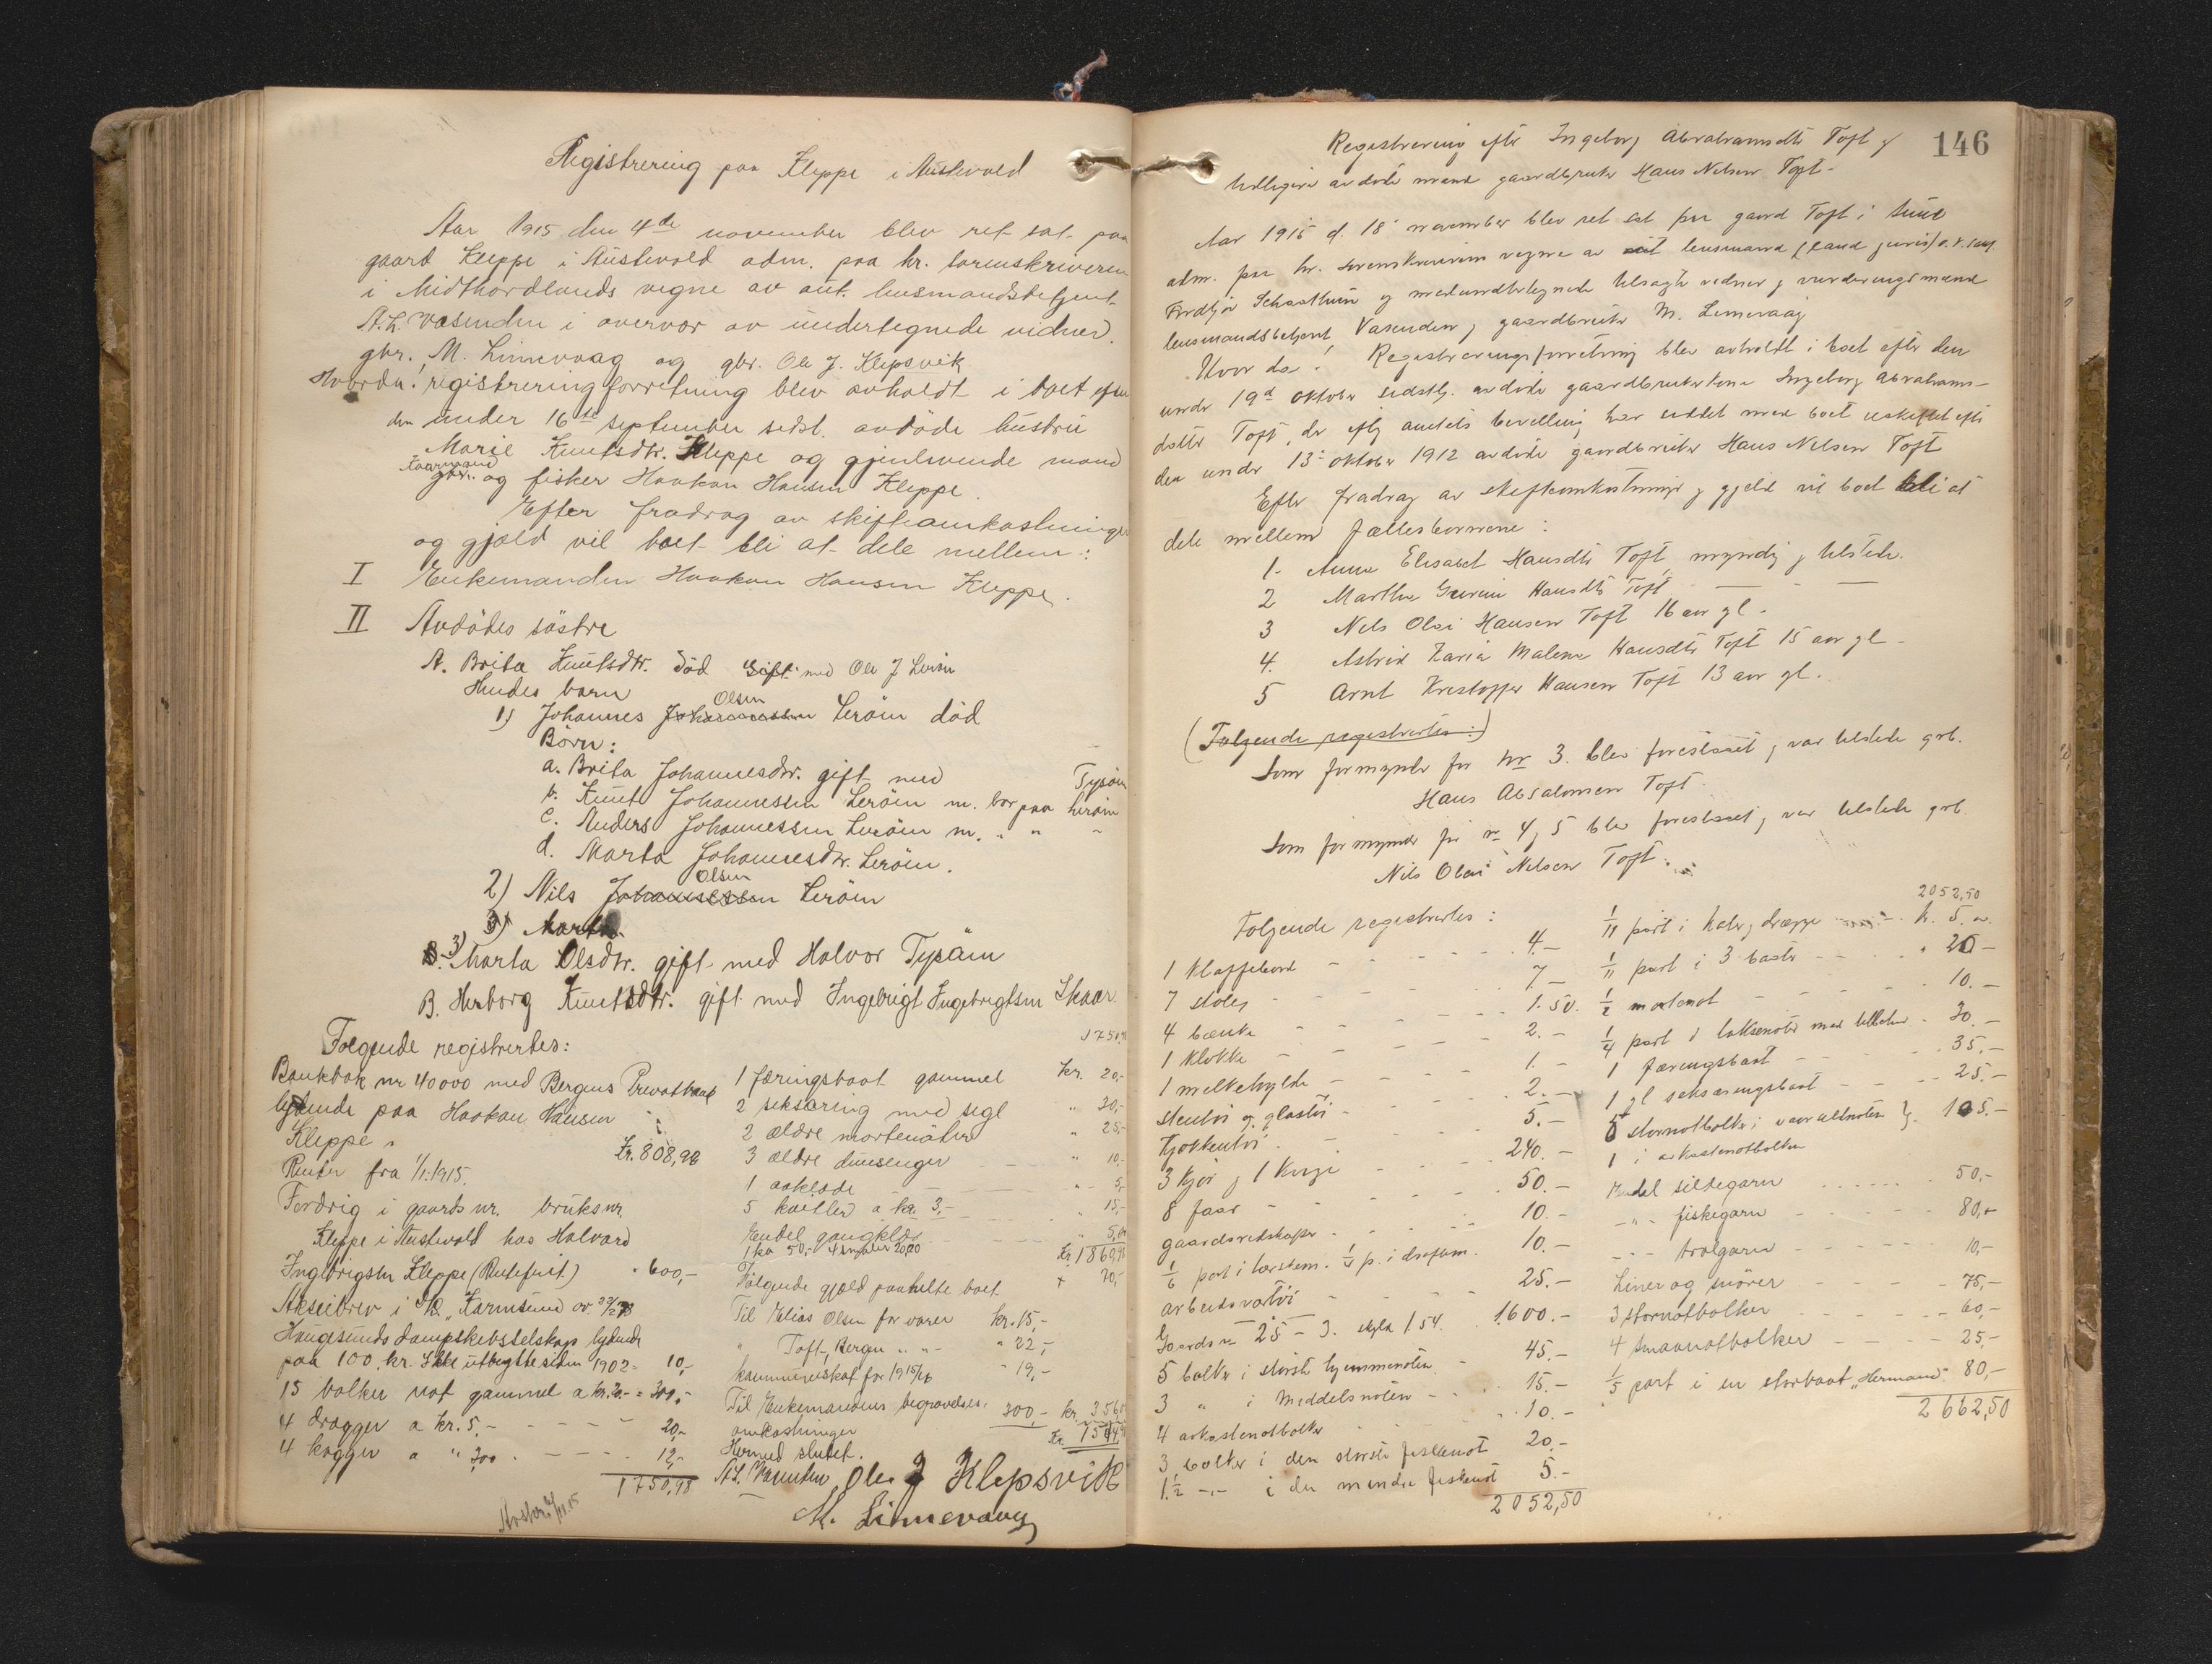 Registrering paa Kleppe i Austevold
Aar 1915 den 4de november blev ret sat paa
gaard Kleppe i Austevold adm. paa hr. sorenskriveren
i Midthordlands vegne av aut. lensmandsbetjent
A. L. Vasenden i overvær av undertegnede vidner.
gbr. M. Linnevaag og gbr. Ole J. Klepsvik
Hvorda! registreringsforretning blev avholdt i boet efter
den under 16de september sidstl. avdöde hustru
Marie Knutsdtr. Kleppe og gjenlevende mand
gbr. og fisker Haakon Hansen Kleppe.
Efter fradrag av skifteomkostninger
og gjæld vil boet bli at dele mellem:
I Enkemanden Haakon Hansen Kleppe.
II Avdödes söstre
A. Brita Knutsdtr. död Gift med Ole J Leröen
Hendes barn
Olsen
1) Johannes Johannessen Leröin död
Börn:
a. Brita Johannesdtr. gift med Tysöen
b. Knut Johannessen Leröin m. bor paa Leröin
c. Anders Johannessen Leröin m. " " "
d. Marta Johannesdtr. Leröin.
Olsen
2) Nils Johannessen Leröin
3) Marta
3) Marta Olsdtr. gift med Halvor Tysöen
B. Herborg Knutsdtr. gift med Ingebrigt Ingebrigtsen Skaar
Fölgende registrertes:
Bankbok nr 40000 med Bergens Privatbank
lydende paa Haakon Hansen
Kleppe. Kr. 808,98
Renter fra 1/1.1915.
Fordring i gaards nr. bruks nr.
Kleppe i Austevold hos Halvard
Ingebrigtsen Kleppe (Rentefrit) " 600,-
Aktiebrev i D/S. "Karmsund" av
Haugesunds dampskibsselskap lydende
paa 100 kr. Ikke utbygtte siden 1902 = 10,-
15 balker not gammel a kr. 20.- = 300,-
4 dragger a kr. 5,- 20,-
4 kagger a " 3,00 12,-
1750,98
1 færingsbaat gammel kr. 20,-
2 seksæring med segl " 30,-
2 ældre mortenöter " 25,-
3 ældre dunsenger " 10,-
1 aaklæde " 5,-
5 kaatler a kr. 3,- " 15,-
Endel gangklær
Fölgende gjæld paahvilte boet
Til Elias Olsen for varer kr. 15,-
" Toft, Bergen " " " 22,-
kommuneskat for 1915/16 " 19,-
Til Enkemandens begravelses-
omkostninger 300,-
Hermed sluttet.
A L. Vasenden Ole J Klepsvik
M. Linnevaag
146
Registrering efter Ingeborg Abrahamsdtr Toft og
tidligere avdöde mand gaardbruker Hans Nelsen Toft.
Aar 1915 d. 18 november blev ret sat paa gaard Toft i Sund
adm. paa hr. sorenskriverens vegne av lensmand (cand juris)
lensmandsbetjent Vasenden og gaardbruker M. Linnevaag
Hvor da! Registreringsforretning blev avholdt i boet efter den
under 19d oktober sidstl. avdöde gaardbrukerkone Ingeborg Abrahams-
datter Toft, der iflg amtets bevilling har siddet med boet uskiftet efter
den under 13d oktober 1912 avdöde gaardbruker Hans Nelsen Toft
Efter fradrag av skifteomkostninger og gjeld vil boet bli at
dele mellem fællesbørnene:
1. Anna Elisabet Hansdtr Toft, myndig og tilstede.
2 Martha Gurine Hansdtr Toft — " —
3 Nils Olai Hansen Toft 16 aar gl.
4. Astrid Maria Malene Hansdtr Toft 15 aar gl.
5 Arnt Kristoffer Hansen Toft 13 aar gl.
(Følgende registrertes:)
Som formynder for nr 3. blev foreslaaet og var tilstede grb.
Hans Absalomsen Toft.
Som formynder for nr 4 og 5 blev foreslaaet og var tilstede grb.
Nils Olai Nelsen Toft.
Følgende registrertes:
1 Klaffebord 4.-
7 stoler 7.-
4 bænker 1.50.
1 Klokke 2.-
1 melkehylde 1.-
Stentøi og glastøi 2.-
Kjøkkentøi 5.-
3 Kjør og 1 Kvige 240.-
8 faar 50.-
gaardsredskaper 10.-
10.-
arbeidsvatøi 25.-
Gaards nr 25 - 3. skyld 1.54 1600.-
5 bolker i største hjemmenoten 45.-
3 " i Middelsnoten 15.-
4 avkastenotbolker 10.-
3 bolker i den største fiskenot 20.-
1½ -"- i den mindre fiskenot 5.-
2052,50
2052,50
1/11 part i Kater og drægge kr. 5.-
1/11 part i 3 baater " 20-
½ mortenot 10.-
¼ part i laksenøter med tilbehør 30.-
1 færingsbaat 35.-
1 gl seksæringsbaat 25.-
1 i avkastenotbolken
Endel sildegarn 50,-
-"- fiskegarn 80,-
-"- trolgarn 10,-
Liner og snører 75,-
3 stornotbolker 60,-
4 smaanotbolker 25,-
1/5 part i en storbaat "Hermand" 80,-
2662,50